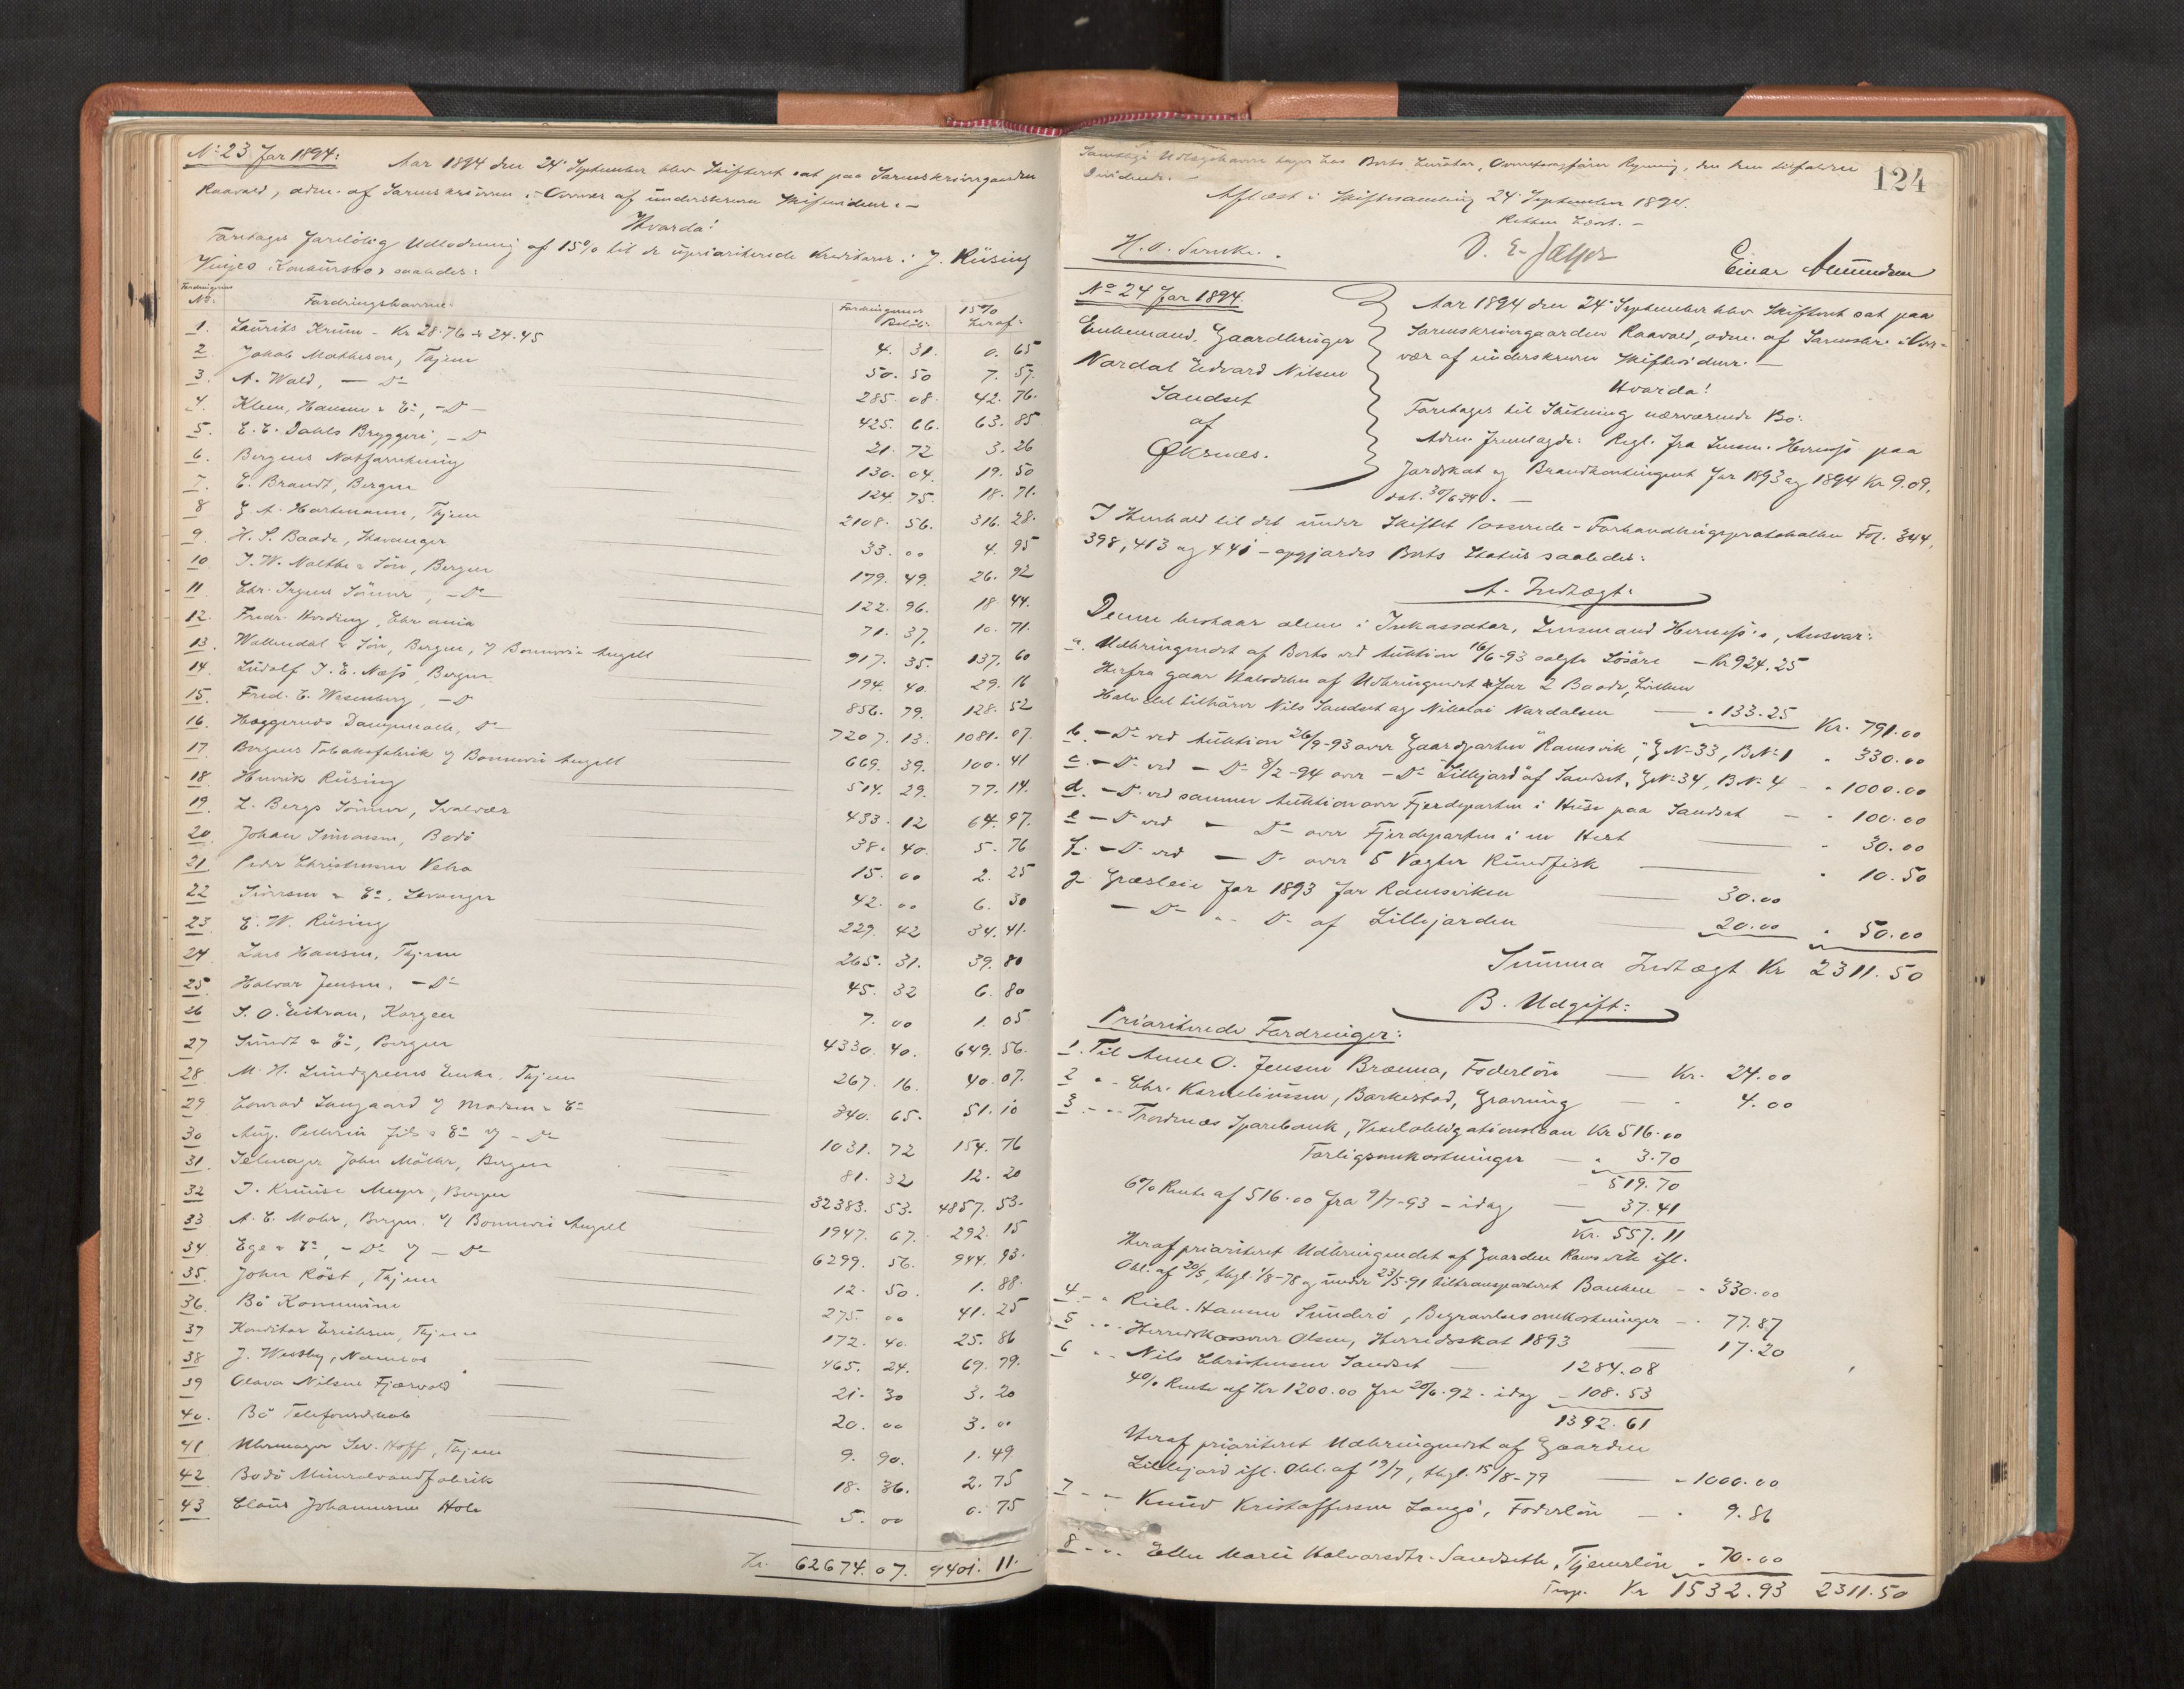 No 23 for 1894:
Aar 1894 den 24' September blev Skifteret sat paa Sorenskrivergaarden
Raavold, adm. af Sorenskriveren i Overvær af underskrevne Skiftevidner. –
Hvorda!
Foretoges foreløbig Udlodning af 15% til de uprioriterede Kreditorer i J. Rüsing
Vinjes Konkursbo saaledes:
Fordringens No:
Fordringshaverne:
Fordringernes Beløb:
15% heraf:
1. Laurits Krüm – Kr 28.76 & 24.45 4. 31. 0. 65
2. Jakob Mathisen, Thjem 50. 50 7. 57.
3. A. Wold, – Do 285. 08. 42. 76.
4. Klem, Hansen & Co, – Do – 425. 66. 63. 85
5. E. C. Dahls Bryggeri, – Do 21. 72 3. 26
6. Bergens Notforretning 130. 04. 19. 50
7. C. Brandt, Bergen 124. 75. 18. 71.
8 G. A. Hartmann, Thjem 2108. 56. 316. 28.
9. H. S. Baade, Stavanger 33. 00 4. 95
10 J. W. Malthe & Søn, Bergen 179. 49. 26. 92
11 Chr. Irgens Sønner, – Do – 122. 96. 18. 44.
12. Fredr. Hording, Chrania 71. 37. 10. 71.
13. Wallendal & Søn, Bergen, v/ Bonnevie Angell 917. 35. 137. 60
14. Ludolf J. E. Næss, Bergen 194. 40. 29. 16
15. Fred. C. Wesenberg, – Do 856. 79. 128. 52
16. Hæggernæs Dampmølle, Do – 7207. 13. 1081. 07.
17 Bergens Tobaksfabrik v/ Bonnevie Angell 669. 39. 100. 41
18 Henrik Rüsing 514. 29. 77. 14.
19. L. Bergs Sønner, Svolvær 433. 12 64. 97.
20. Johan Simonsen, Bodø 38. 40. 5. 76
21 Peder Christensen Vetra 15. 00 2. 25
22 Sivertsen & Co, Levanger 42. 00 6. 30
23. E. W. Rüsing 229. 42 34. 41.
24 Lars Hansen, Thjem 265. 31. 39. 80
25 Halvor Jensen, – Do – 45. 32 6. 80
26 S. O. Eitran, Korgen 7. 00 1. 05
27 Sundt & Co, Bergen 4330. 40. 649. 56.
28. M. H. Lundgrens Enke, Thjem 267. 16. 40. 07.
29 Conrad Langaard v/ Madsen & Co 340. 65. 51. 10
30 Aug. Pellerin fils & Co v/ – Do – 1031. 72 154. 76
31. Selmager John Møller, Bergen 81. 32 12. 20
32 J. Kruuse Meyer, Bergen 32383. 53. 4857. 53.
33 A. E. Mohr, Bergen, v/ Bonnevie Angell 1947. 67. 292. 15
34. Ege & Co, – Do – v/ – Do – 6299. 56. 944. 93.
35. John Röst, Thjem 12. 50. 1. 88.
36. Bö Kommune 275. 00 41. 25
37 Konditor Erichsen, Thjem 172. 40. 25. 86
38 J. Westby, Namsos 465. 24. 69. 79.
39 Olava Nilsen Fjærvold 21. 30 3. 20
40. Bö Telefonselskab 20. 00 3. 00
41. Uhrmager Sev. Hoff, Thjem 9. 90. 1. 49
42. Bodö Mineralvandfabrik 18. 36. 2. 75
43 Claus Johannesen Hole 5. 00 0. 75
Kr. 62674. 07. 9401. 11.
124
Samtlige Udlagshavere tager hos Boets Kurator, Overretssagfører Rynning, den dem tilfaldne
Dividende. –
Afsluttet i Skiftesamling 24' September 1894.
Retten hævet. –
H. O. Svenke. D. E. Jæger Einar Amundsen
No 24 for 1894.
Enkemand, Gaardbruger
Nordal Edvard Nilsen
Sandset
af
Øksnes.
Aar 1894 den 24' September blev Skifteret sat paa
Sorenskrivergaarden Raavold, adm. af Sorenskr. i Over-
vær af underskrevne Skiftevidner. –
Hvorda!
Foretoges til Slutning nærværende Bo:
Adm. fremlagde: Regl. fra Lensm. Herness paa
Jordskat og Brandkontingent for 1893 og 1894 Kr 9.09,
dat. 30/6 94. –
I Henhold til det under Skiftet Passerede – Forhandlingsprotokollen Fol. 344,
398, 413 og 441 – opgjordes Boets Status saaledes:
A. Indtægt:
Denne bestaar alene i Inkassator, Lensmand Herness's, Ansvar:
a. Udbringendet af Boets ved Auktion 16/6-93 solgte Løsøre – Kr 924.25
Herfra gaar Halvdelen af Udbringendet for 2 Baade, hvilken
Halvdel tilhører Nils Sandset og Nikolai Nordalsen – " 133.25 Kr. 791.00
b. – Do ved Auktion 26/9-93 over Gaardparten "Ramsvik", G.No 33, B.No 1 " 330.00
c. – Do – ved – Do 8/2-94 over – Do "Lillejord" af Sandset, G.No 34, B.No 4 – " 1000.00
d. – Do ved samme Auktion over Fjerdeparten i Huse paa Sandset – " 100.00
e – Do ved – Do – over Fjerdeparten i en Hest – " 30.00
f. – Do ved – Do over 5 Vægter Rundfisk – " 10.50
g Græsleie for 1893 for Ramsviken – 30.00
– Do – " – Do af Lillejorden – 20.00 " 50.00
Summa Indtægt Kr 2311.50
B. Udgift:
Prioriterede Fordringer:
1. Til Anne O. Jensen Brænna, Foderløn – Kr. 24.00
2 " – Chr. Korneliussen, Barkestad, Gravning – " 4.00
3. – " – Trondenæs Sparebank, Vexelobligationslaan Kr 516.00
Forligsomkostninger – " 3.70
519.70
6% Rente af 516.00 fra 9/7-93 – idag – 37.41
Kr. 557.11
Heraf prioriteret Udbringendet af Gaarden Ramsvik ifl.
Obl. af 20/5, thgl. 1/8-78 og under 23/5-91 tiltransporteret Banken – " 330.00
4 – " Rich. Hansen Sunderö, Begravelsesomkostninger – " 77.87
5 " – Herredskasserer Olsen, Herredsskat 1893 – 17.20
6 " – Nils Christensen Sandset – 1284.08
4% Rente af Kr 1200.00 fra 20/6-92 – idag – 108.53
1392.61
Heraf prioriteret Udbringendet af Gaarden
Lillejord ifl. Obl. af 19/7, thgl. 15/8-79 – " 1000.00
7 – " – Knud Kristoffersen Langö, Foderløn – " 9.86
8 – " – Ellen Marie Halvorsdtr. Sandseth, Tjenerløn " 70.00
Trsp. Kr 1532.93 2311.50